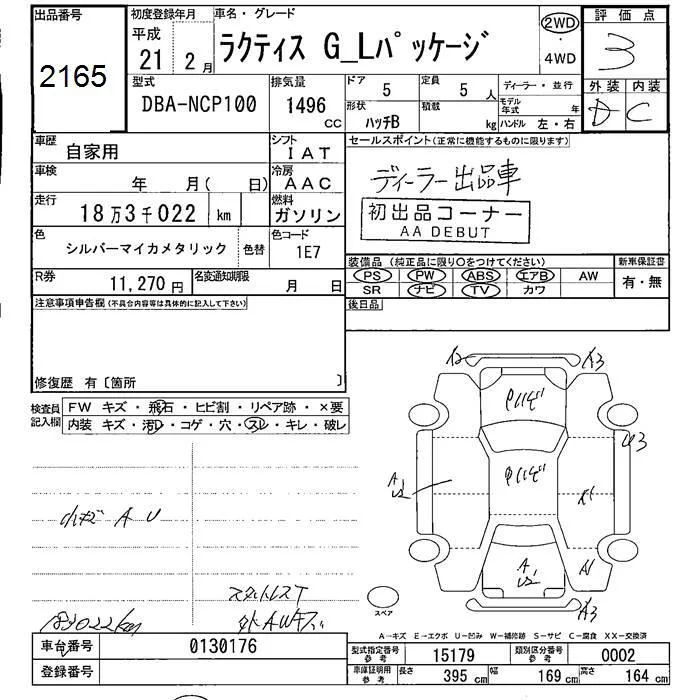 出品番号 初度登録年月 車名・グレード 評価点
2165 平成 21 2月 ラクティス G_Lパッケージ 2WD ・ 4WD 3
型式 排気量 ドア 定員 ディーラー・並行 外装 内装
DBA-NCP100 1496 CC 5 5 人 モデル年式 年 D C
形状 ハッチB 積載 kg ハンドル 左・右
車歴 自家用 シフト IAT セールスポイント(正常に機能するものに限ります)
車検 年 月( 日) 冷房 AAC ディーラー出品車
走行 18万3千022 km 燃料 ガソリン 初出品コーナー
AA DEBUT
色 シルバーマイカメタリック 色替 色コード 1E7
装備品(純正品に限り○をつけてください) 新車保証書
R券 11,270円 名変通知期限 月 日 PS PW ABS エアB AW 有・無
SR ナビ TV カワ
注意事項申告欄(不具合内容等は具体的に記入して下さい) 後日品
修復歴 有〔箇所 〕
検査員記入欄 FW キズ・飛石・ヒビ割・リペア跡・×要
内装 キズ・汚レ・コゲ・穴・スレ・キレ・破レ
A3
U3
A
U2
A U
A1
A
U2
183022km
A3
スペア
A-キズ E-エクボ U-凹み W-補修跡 S-サビ C-腐食 XX-交換済
車台番号 0130176 型式指定番号 参考 15179 類別区分番号 参考 0002
登録番号 車庫証明用 参考 長さ 395 cm 幅 169 cm 高さ 164 cm